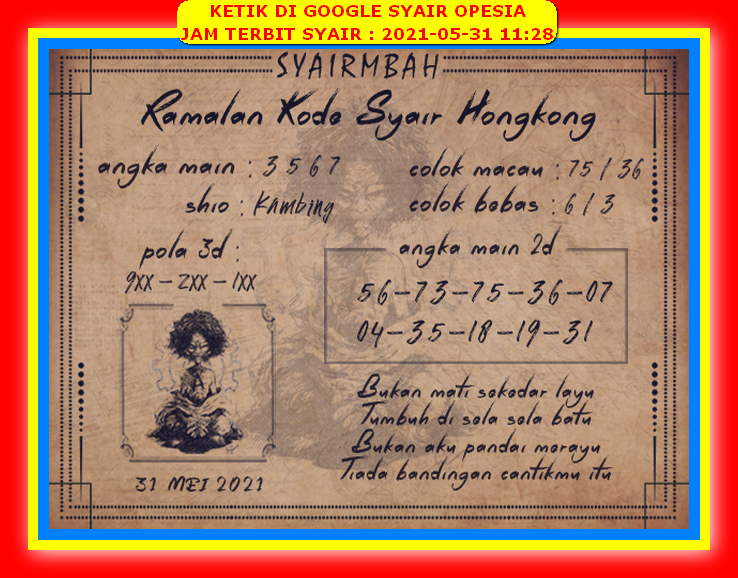 KETIK DI GOOGLE SYAIR OPESIA
JAM TERBIT SYAIR : 2021-05-31 11:28
SYAIRMBAH
Ramalan Kode Syair Hongkong
angka main : 3 5 6 7
colok macau : 75 / 36
shio : Kambing
colok bebas : 6 / 3
pola 3d :
9XX - 2XX - 1XX
angka main 2d
56-73-75-36-07
04-35-18-19-31
Bukan mati sekedar layu
Tumbuh di sela sela batu
Bukan aku pandai merayu
Tiada bandingan cantikmu itu
31 MEI 2021